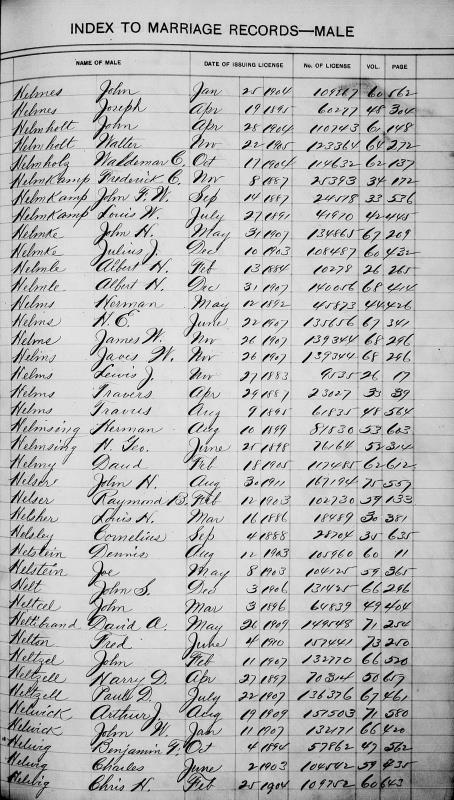 INDEX TO MARRIAGE RECORDS—MALE
NAME OF MALE DATE OF ISSUING LICENSE No. OF LICENSE VOL. PAGE
Helmes John Jan 25 1904 109967 60 562
Helmes Joseph Apr 19 1895 60277 48 304
Helmholt John Apr 28 1904 110743 61 148
Helmholt Walter Nov 22 1905 123364 64 272
Helmholz Waldemar C. Oct 17 1904 114632 62 137
Helmkamp Frederick C. Nov 8 1887 25393 34 172
Helmkamp John F. W. Sep 14 1887 24578 33 536
Helmkamp Louis W. July 27 1891 41910 42 445
Helmke John H. May 31 1907 134865 67 209
Helmke Julius J. Dec 10 1903 108487 60 432
Helmle Albert H. Feb 13 1884 10278 26 265
Helmle Albert H. Dec 31 1907 140056 68 414
Helms Herman May 12 1892 45873 44 426
Helms H. E. June 22 1907 135656 67 341
Helms James W. Nov 26 1907 139344 68 296
Helms W. Nov 26 1907 139344 68 296
Helms Lewis J. Nov 27 1883 9535 26 17
Helms Travers Apr 29 1887 23027 33 39
Helms Travus Aug 9 1895 61835 48 564
Helmsing Herman Aug 10 1899 81830 53 603
Helmsing H. Geo. June 25 1898 76164 52 314
Helmy David Feb 18 1905 117485 62 612
Helser John H. Aug 30 1911 167194 75 557
Helser Raymond B. Feb 12 1903 102730 59 133
Helsher Louis H. Mar 16 1886 18489 30 381
Helsley Cornelius Sep 4 1888 28704 35 635
Helstein Dennis Aug 12 1903 105960 60 11
Helstein Joe May 8 1903 104125 59 365
Helt John S. Dec 3 1906 131425 66 296
Heltzel John Mar 3 1896 64839 49 404
Heltibrand David A. May 26 1909 149548 71 254
Helton Fred June 4 1910 157441 73 250
Heltzel John Feb 11 1907 132770 66 520
Heltzell Harry D. Apr 27 1897 70314 50 657
Heltzell Paul D. July 22 1907 136376 67 461
Helwick Arthur J. Aug 19 1909 151503 71 580
Helwick John W. Jan 11 1907 132171 66 420
Helwig Benjamin F. Oct 4 1894 57862 47 562
Helwig Charles June 2 1903 104562 59 435
Helwig Chris H. Feb 25 1904 109752 60 643